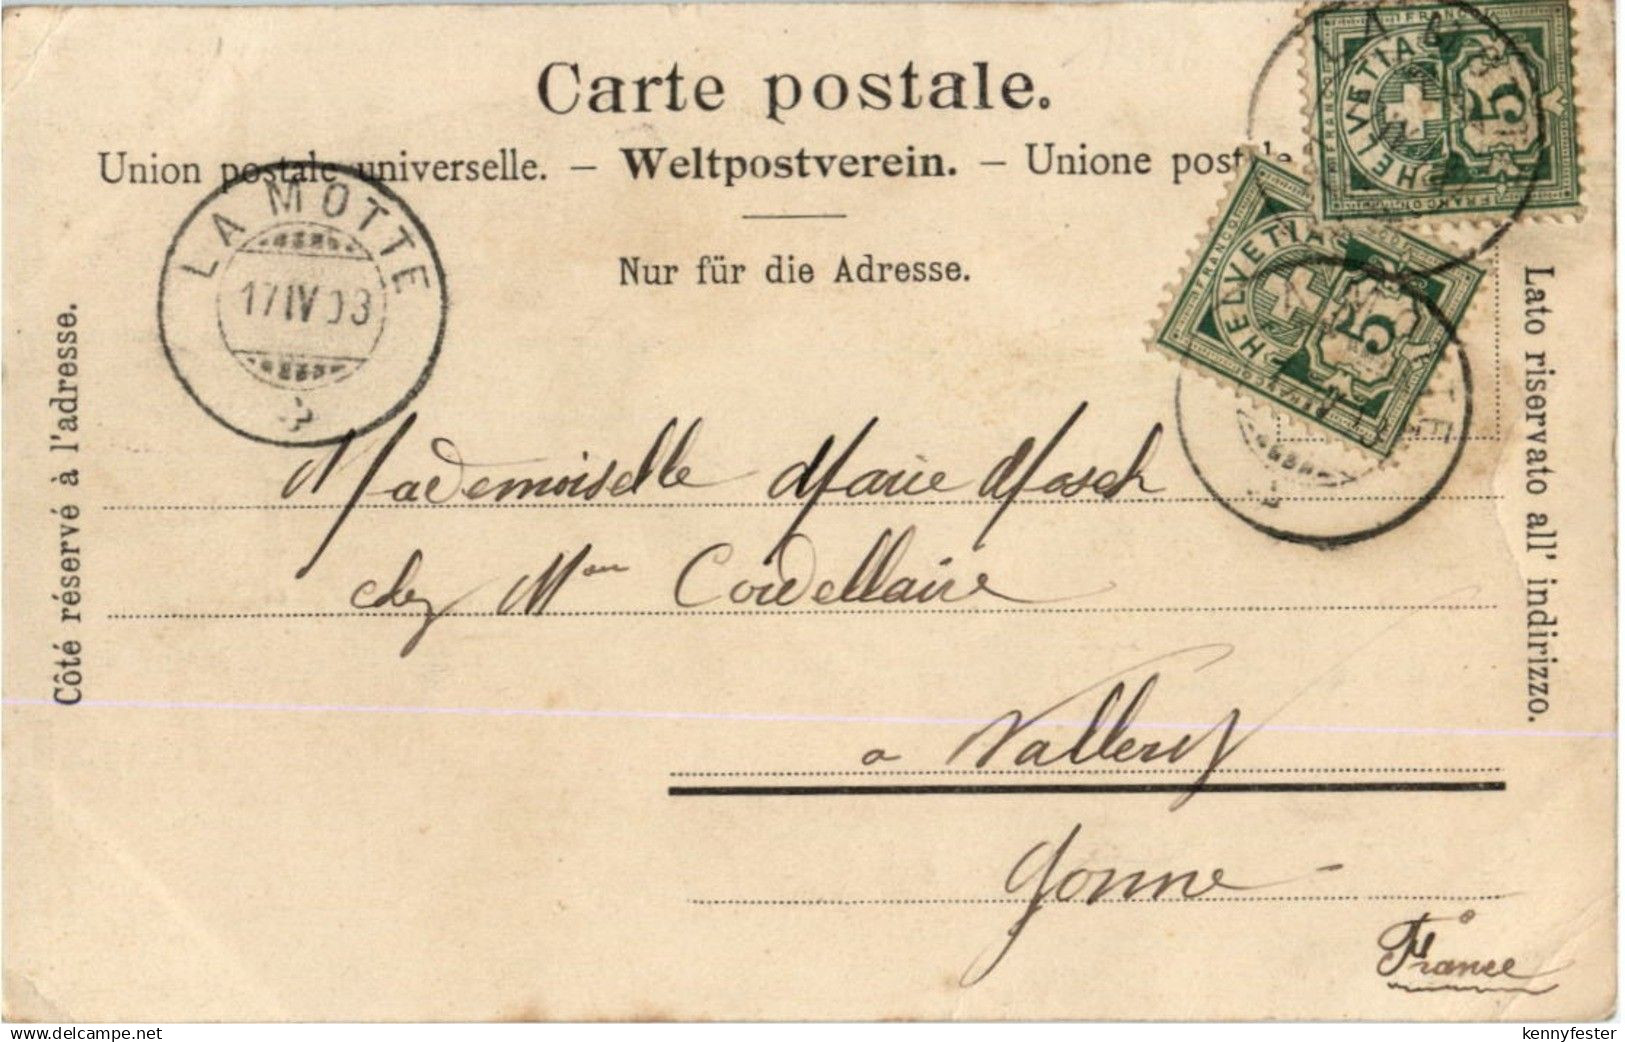 Carte postale.
Union postale universelle. – Weltpostverein. – Unione postale
Nur für die Adresse.
Côté réservé à l'adresse.
Lato riservato all' indirizzo.
LA MOTTE
17 IV 03
FRANCO
HELVETIA
5
FRANCO
HELVETIA
5
Mademoiselle Marie Mosch
chez Mme Cordellaire
a Vallery
Yonne
France
delcampe.net
kennyfester